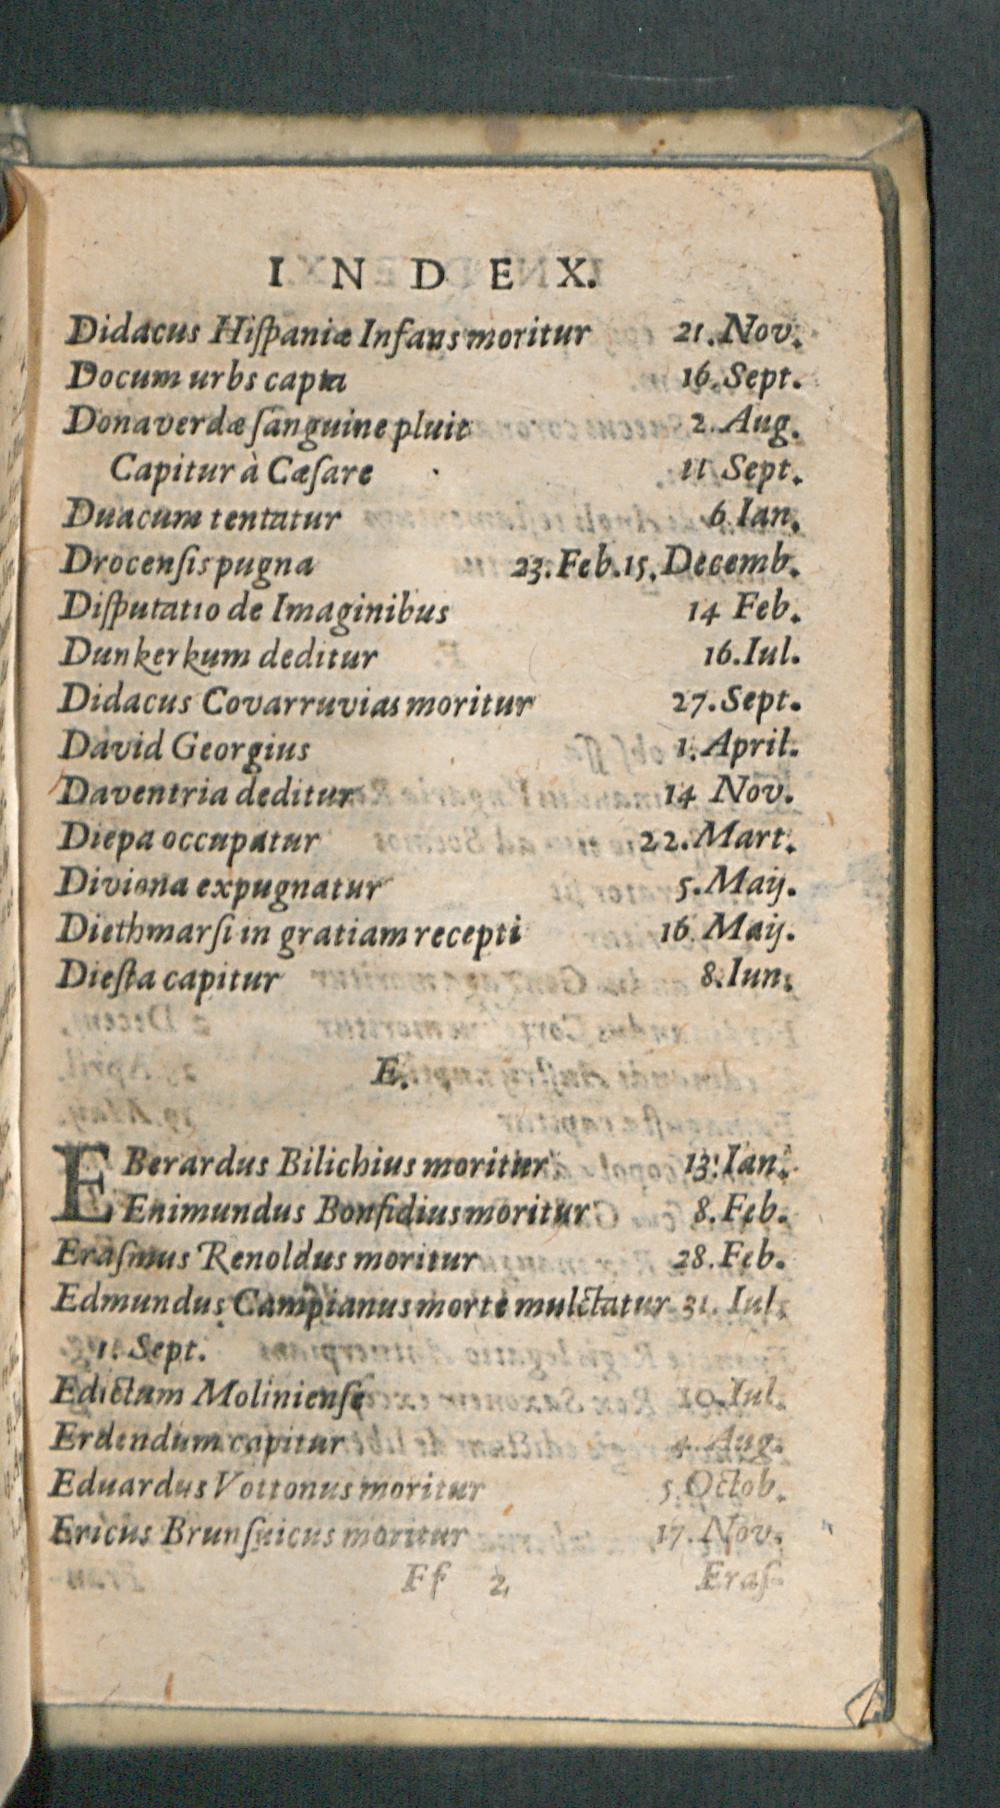 INDEX.
Didacus Hiſpaniæ Infans moritur 21. Nov.
Docum urbs capta 16. Sept.
Donaverdæ ſanguine pluit 2. Aug.
Capitur à Cæſare 11 Sept.
Duacum tentatur 6 Ian.
Drocenſis pugna 23. Feb. 15. Decemb.
Diſputatio de Imaginibus 14 Feb.
Dunkerkum deditur 16. Iul.
Didacus Covarruvias moritur 27. Sept.
David Georgius 1. April.
Daventria deditur 14 Nov.
Diepa occupatur 22. Mart.
Diviona expugnatur 5. Maij.
Diethmarſi in gratiam recepti 16. Maij.
Dieſta capitur 8. Iun.
E.
EBerardus Bilichius moritur 13. Ian.
Enimundus Bonfidius moritur 8. Feb.
Eraſmus Renoldus moritur 28. Feb.
Edmundus Campianus morte mulctatur 31. Iul.
1. Sept.
Edictum Molinienſe 10. Iul.
Erdendum capitur 4. Aug.
Eduardus Vottonus moritur 5. Octob.
Ericus Brunſuicus moritur 17. Nov.
Ff 2 Eraſ-